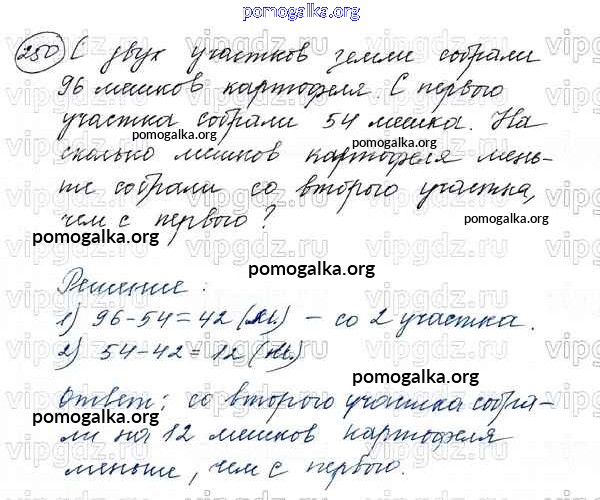 pomogalka.org
250 С двух участков земли собрали
96 мешков картофеля. С первого
участка собрали 54 мешка. На
pomogalka.org
сколько мешков картофеля мень-
ше собрали со второго участка,
чем с первого?
pomogalka.org
pomogalka.org
pomogalka.org
Решение.
1) 96-54=42 (м.) – со 2 участка.
2) 54-42=12 (м.)
pomogalka.org
Ответ: со второго участка собра-
pomogalka.org
ли на 12 мешков картофеля
меньше, чем с первого.
pomogalka.org
vipgdz.ru